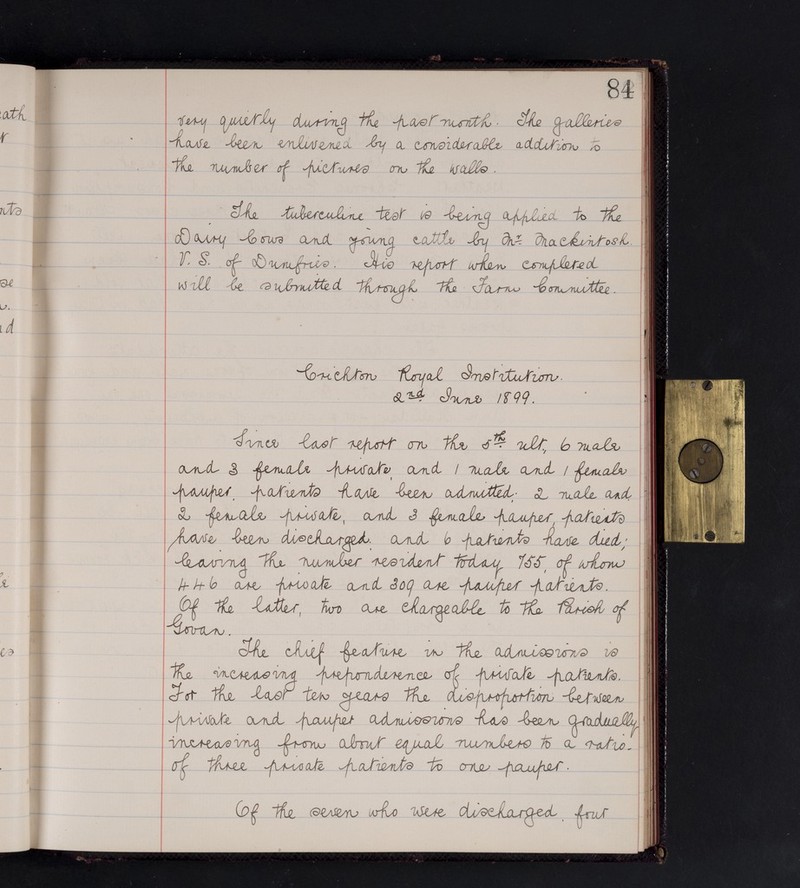 84
very quietly during the past month. The galleries
have been enlivened by a considerable addition to
the number of pictures on the walls.
The tuberculine test is being applied to the
Dairy Cows and young cattle by Mr. Mackintosh.
V. S. of Dumfries. His report when completed
will be submitted through the Farm Committee.
Crichton Royal Institution.
2nd June 1899.
Since last report on the 5th ult, 6 male
and 3 female private and 1 male and 1 female
pauper patients have been admitted; 2 male and
2 female private, and 3 female pauper, patients
have been discharged and 6 patients have died;
leaving the number resident today 755, of whom
446 are private and 309 are pauper patients.
Of the latter, two are chargeable to the Parish of
Govan.
The chief feature in the admissions is
the increasing preponderence of private patients.
For the last ten years the disproportion between
private and pauper admissions has been gradually
increasing from about equal numbers to a ratio
of three private patients to one pauper.
Of the seven who were discharged, four